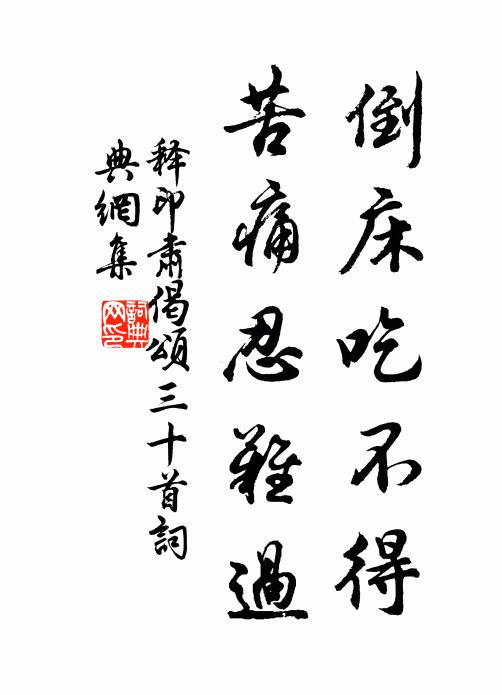 倒床吃不得
苦痛忍難過
释印肅偈頌三十首詞
典網集
詞典网印